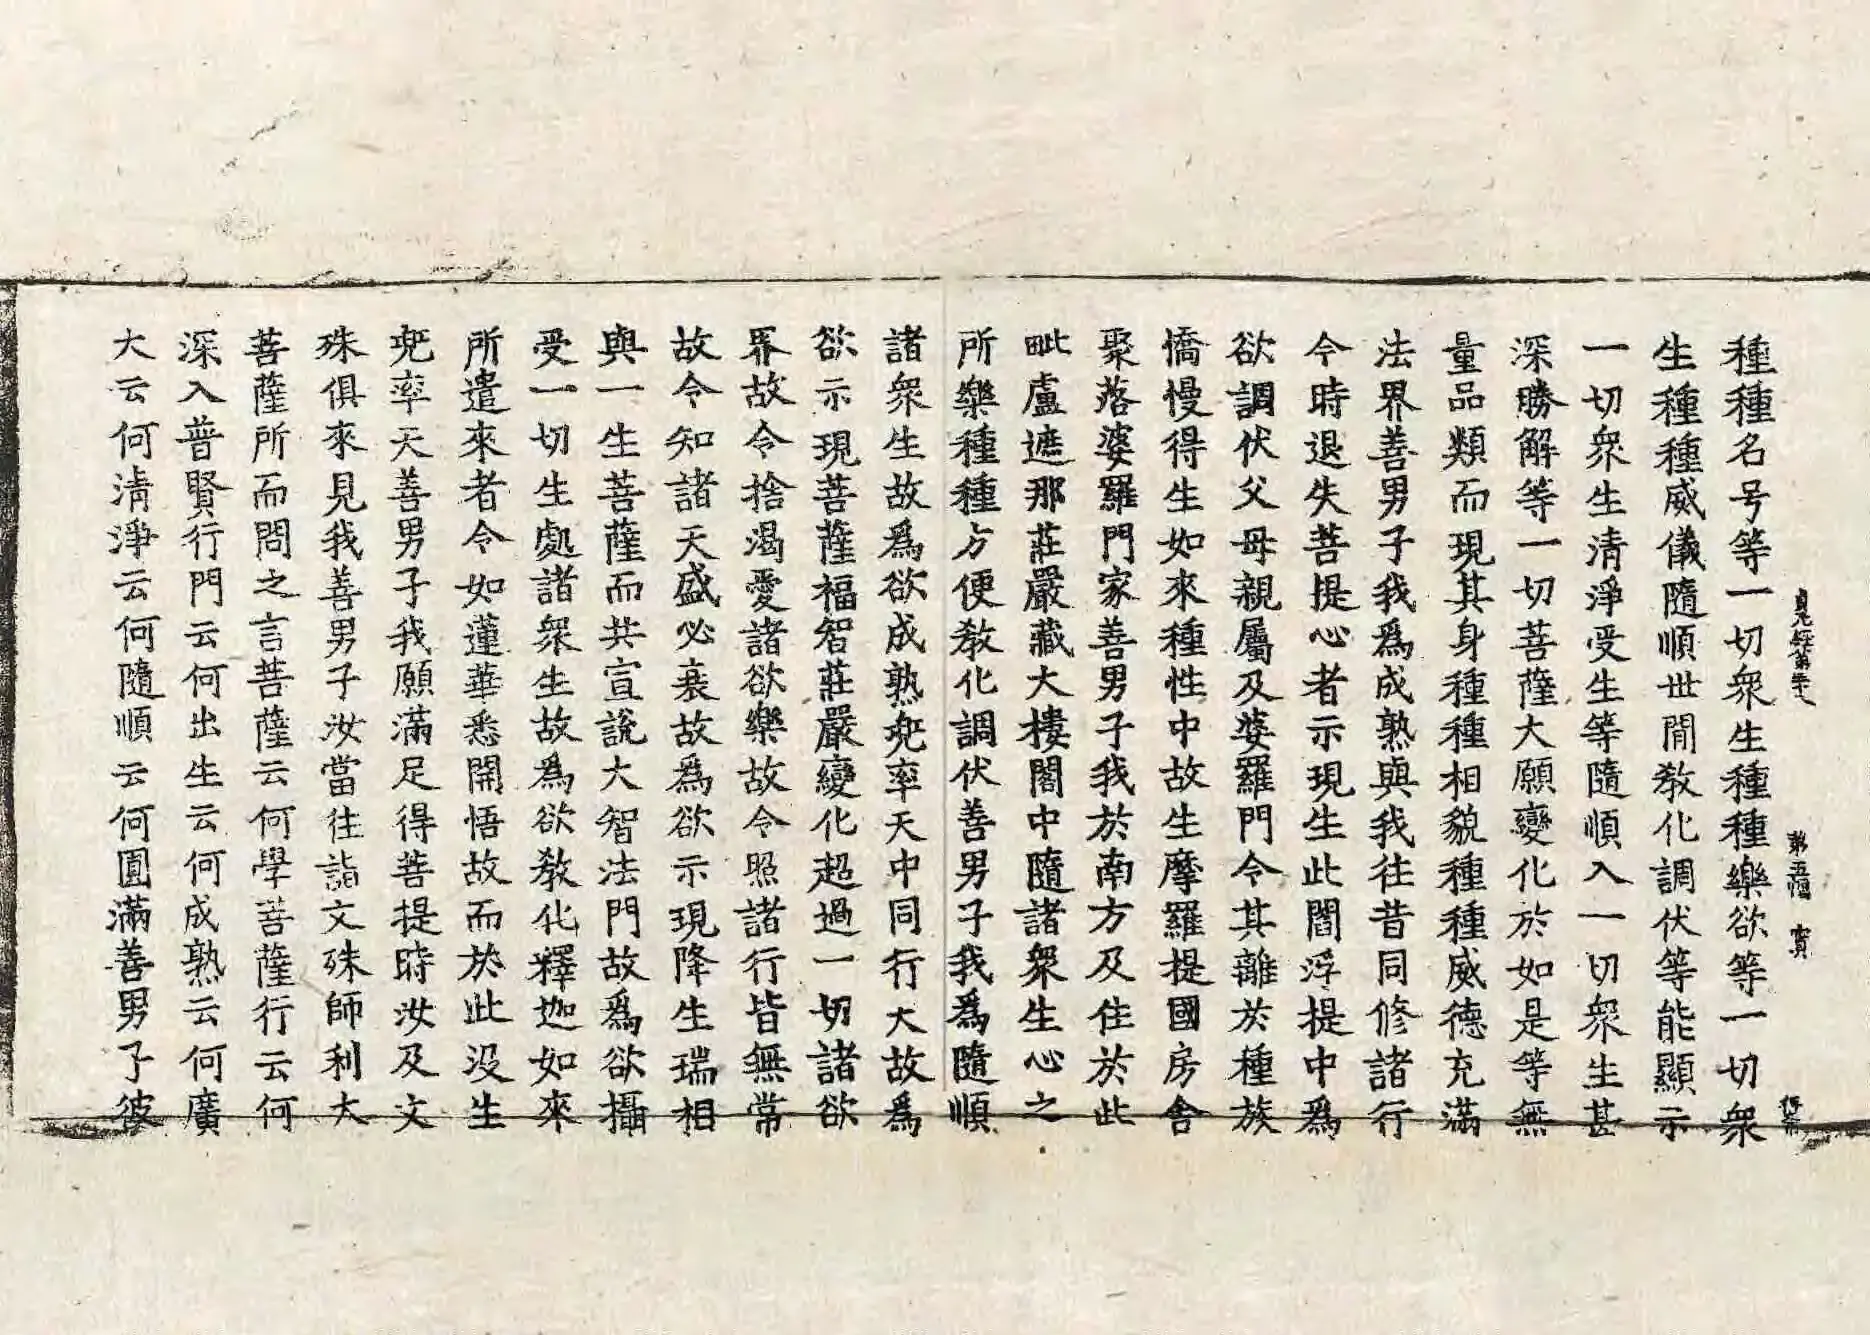 貞元經第三十八 第五張 寳
種種名号等一切衆生種種樂欲等一切衆
生種種威儀隨順世間教化調伏等能顯示
一切衆生清淨受生等隨順入一切衆生甚
深勝解等一切菩薩大願變化於如是等無
量品類而現其身種種相貌種種威德充滿
法界善男子我爲成熟與我往昔同修諸行
今時退失菩提心者示現生此閻浮提中爲
欲調伏父母親屬及婆羅門令其離於種族
憍慢得生如來種性中故生摩羅提國房舍
聚落婆羅門家善男子我於南方及住於此
毗盧遮那莊嚴藏大樓閣中隨諸衆生心之
所樂種種方便教化調伏善男子我爲隨順
諸衆生故爲欲成熟兜率天中同行天故爲
欲示現菩薩福智莊嚴變化超過一切諸欲
界故令捨渴愛諸欲樂故令照諸行皆無常
故令知諸天盛必衰故爲欲示現降生瑞相
與一生菩薩而共宣說大智法門故爲欲攝
受一切生處諸衆生故爲欲教化釋迦如來
所遣來者令如蓮華悉開悟故而於此没生
兜率天善男子我願滿足得菩提時汝及文
殊俱來見我善男子汝當往詣文殊師利大
菩薩所而問之言菩薩云何學菩薩行云何
深入普賢行門云何出生云何成熟云何廣
大云何清淨云何隨順云何圓滿善男子彼